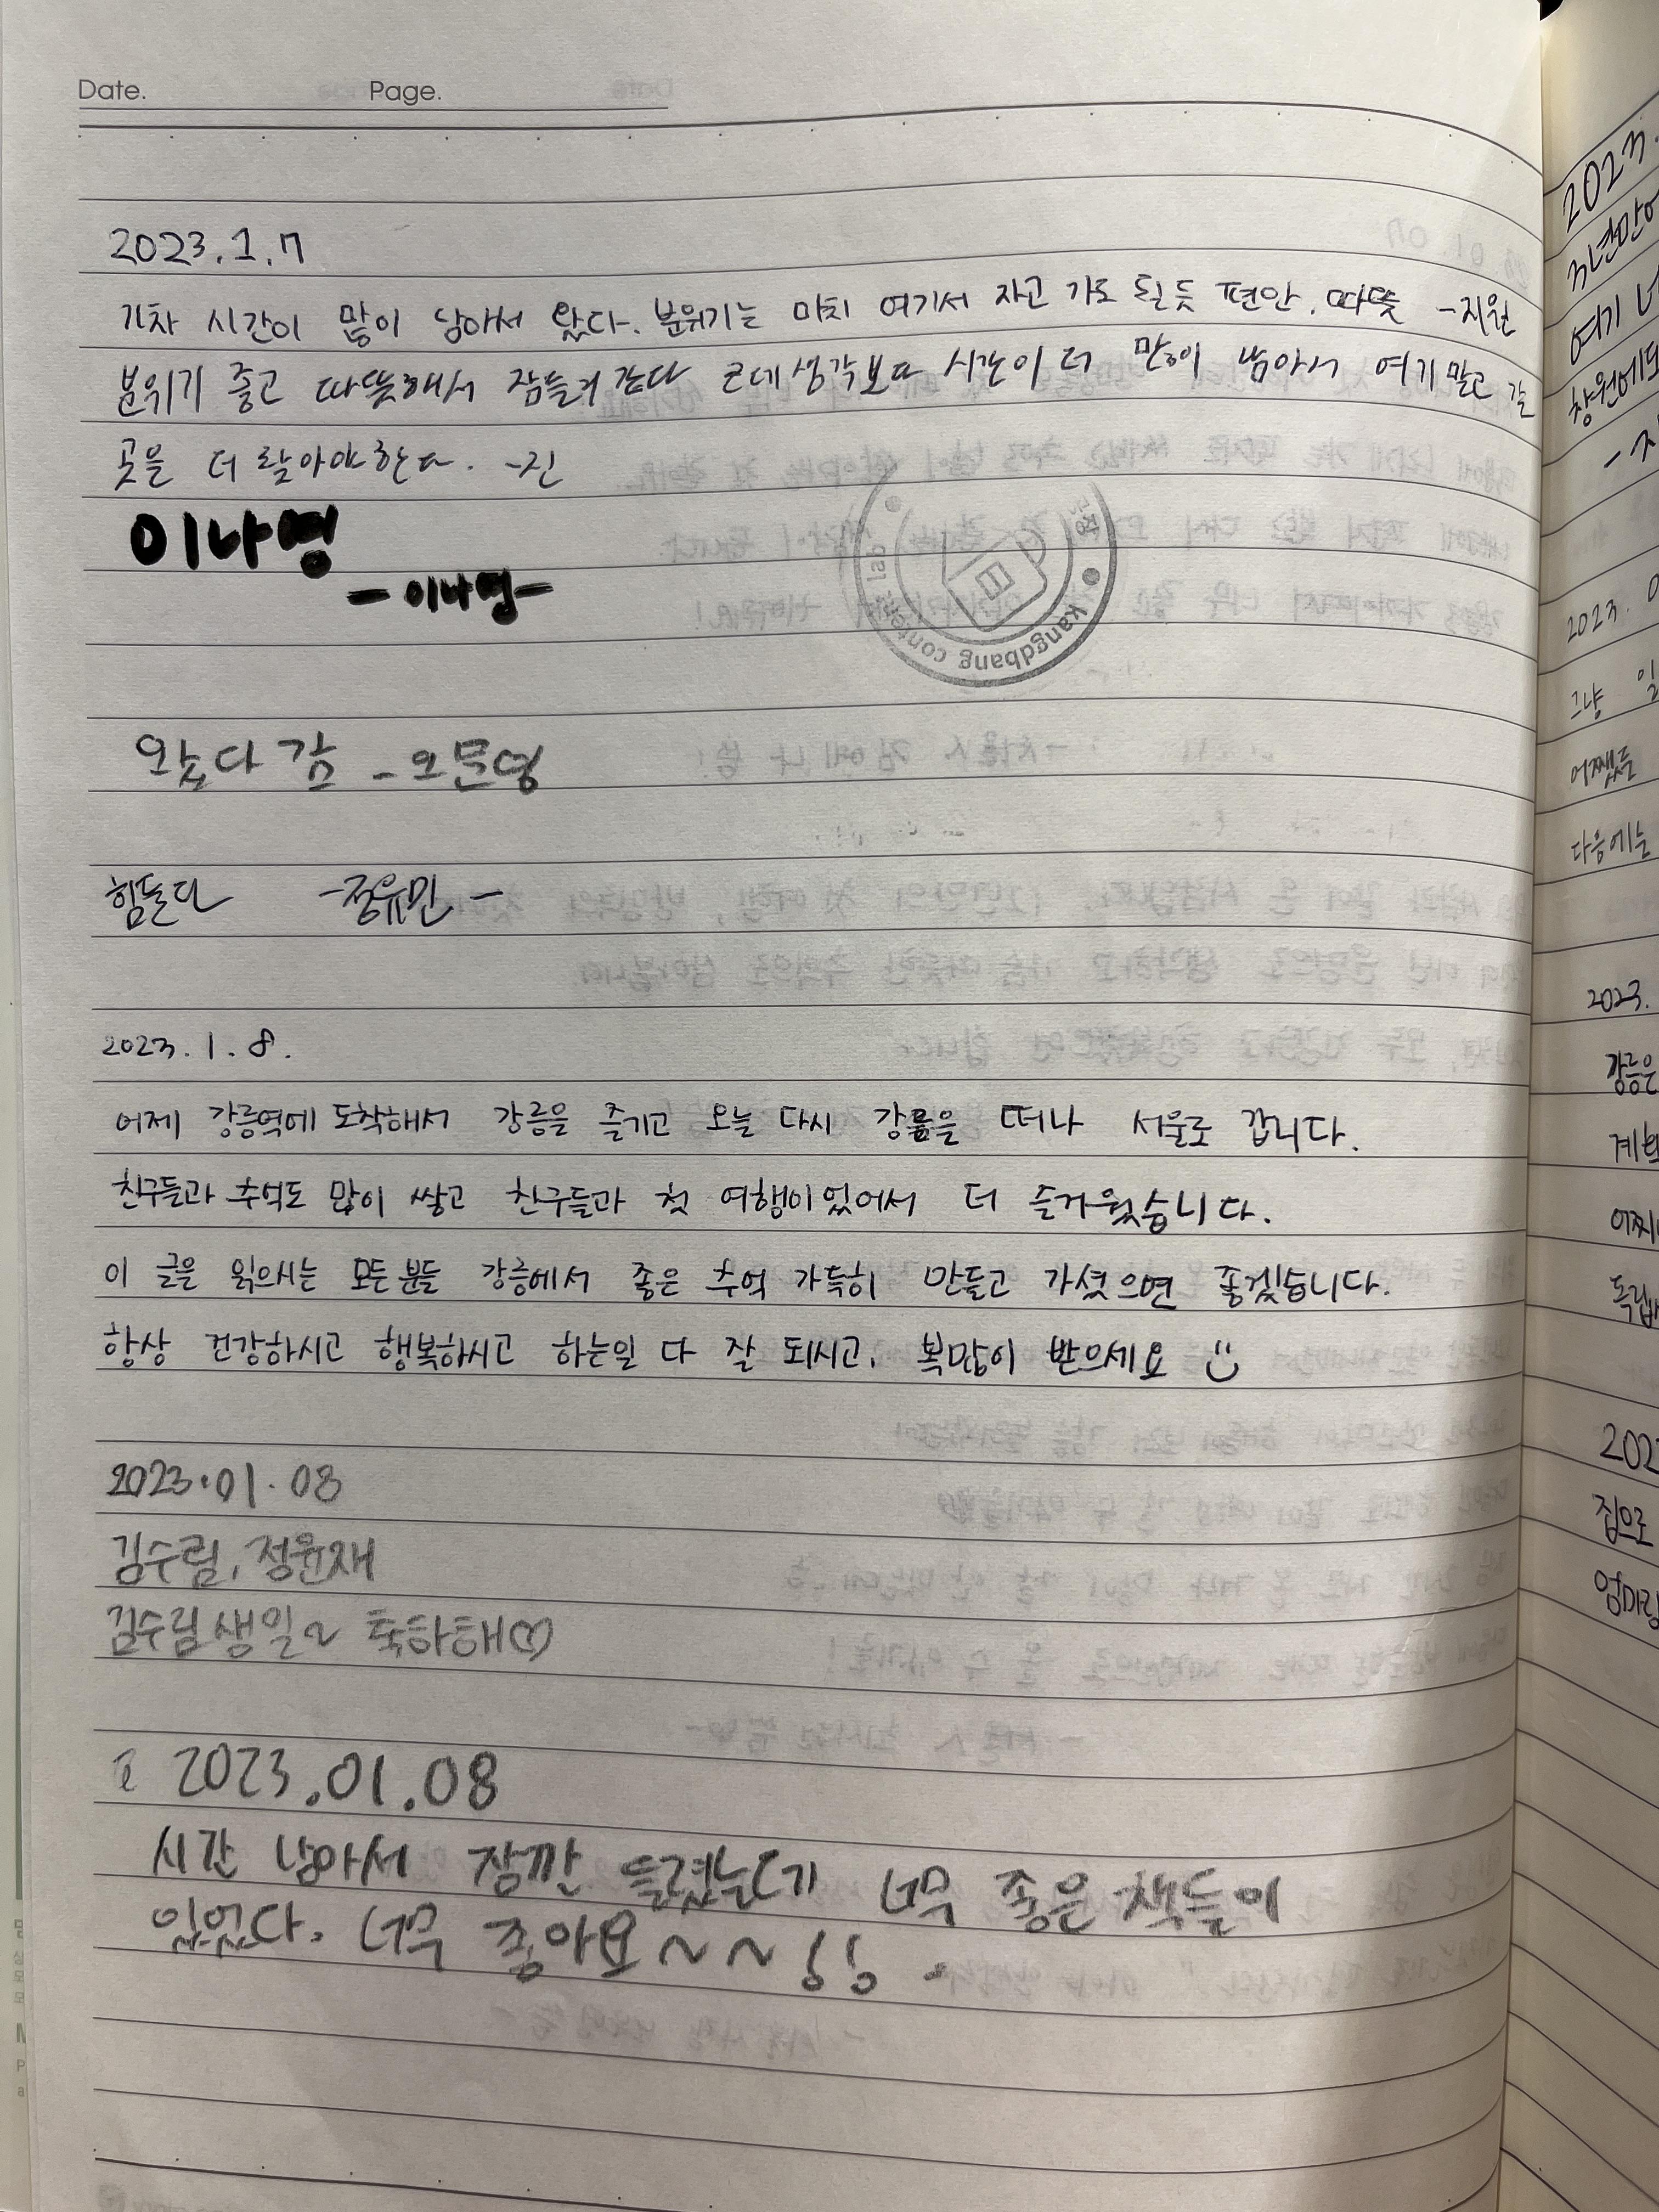 Date. Page.
2023.1.7
기차 시간이 많이 남아서 왔다. 분위기는 마치 여기서 자고 가도 될듯 편안. 따뜻 -지원
분위기 좋고 따뜻해서 잠들거 같다 근데 생각보다 시간이 더 많이 남아서 여기 말고 갈
곳을 더 찾아야한다. -진
이나영
- 이나영 -
kangdbang contents lab
왔다 감 - 오문영
힘들다 -정유민-
2023. 1. 8.
어제 강릉역에 도착해서 강릉을 즐기고 오늘 다시 강릉을 떠나 서울로 갑니다.
친구들과 추억도 많이 쌓고 친구들과 첫 여행이있어서 더 즐거웠습니다.
이 글을 읽으시는 모든 분들 강릉에서 좋은 추억 가득히 만들고 가셨으면 좋겠습니다.
항상 건강하시고 행복하시고 하는일 다 잘 되시고, 복많이 받으세요
2023.01.08
김수림, 정윤재
김수림 생일~ 축하해♡
2023.01.08
시간 남아서 잠깐 들렸는데 너무 좋은 책들이
있었다. 너무 좋아요~~!!
2023.
3년만에
여기
창원에도
2023.
그냥
어쨌든
다음에는
2023.
강릉은
집으로
엄마랑